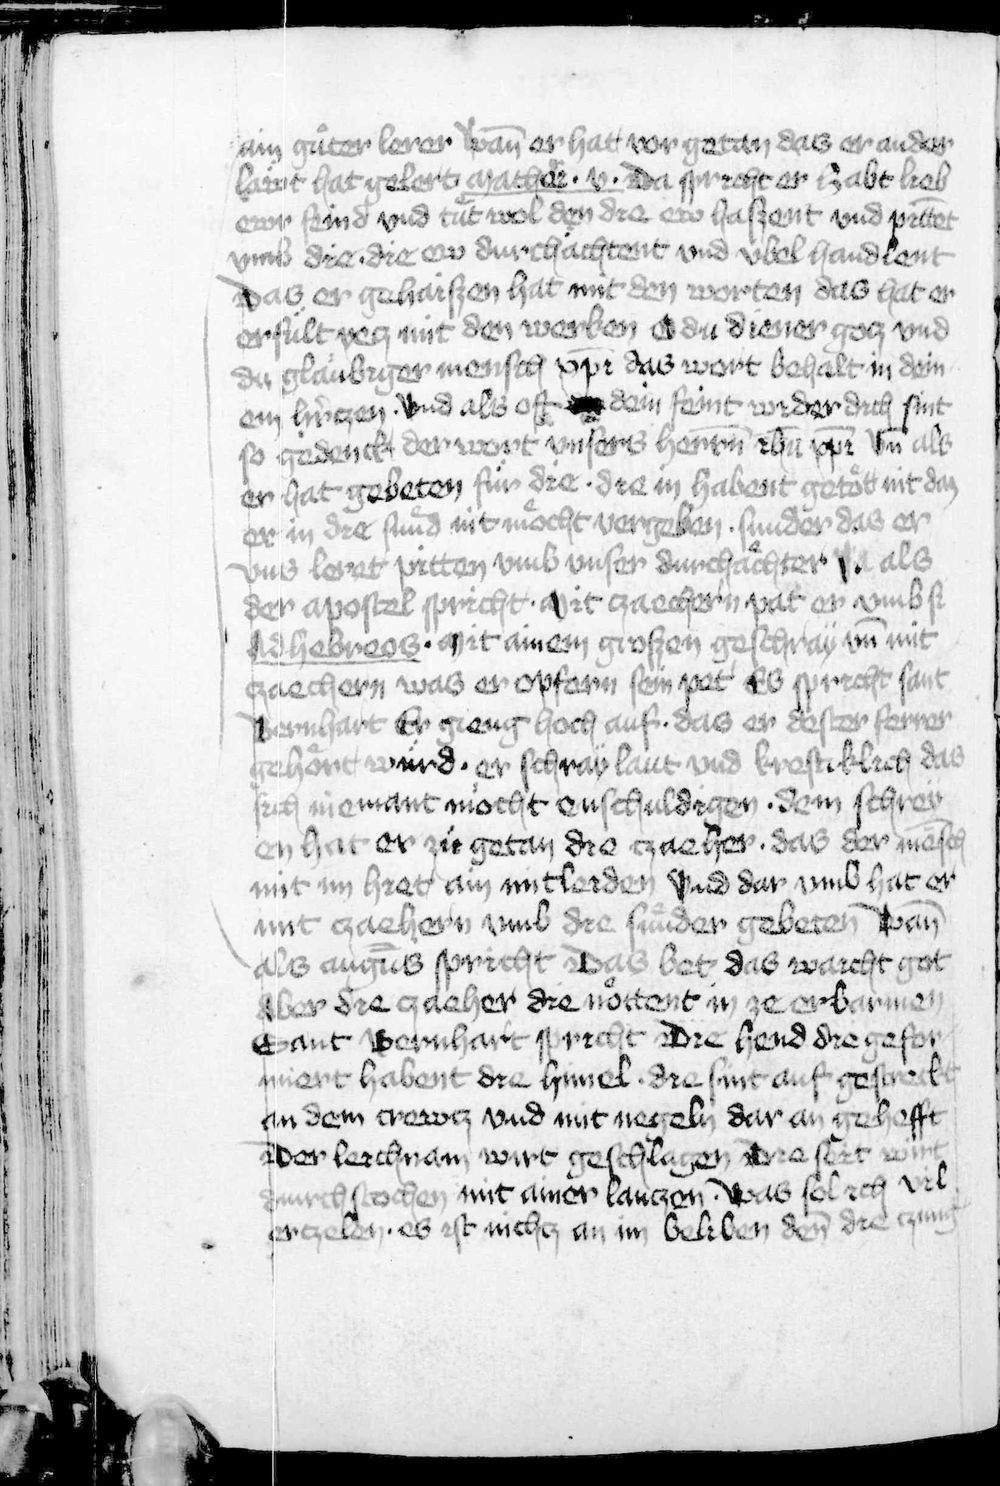 ain gůter lerer Wan̄ er hat vor getan das er ander
lawt hat gelert Mathei · v · Da spricht er Habt lieb
ewr feind vnd tůt wol den die ew haszent vnd pittet
vmb die · die ew durchächtent vnd übel handlent
Das er gehaiszen hat mit den worten das hat er
erfült yecz mit den werken O du diener gocz vnd
du glaubiger mensch xp̄i das wort behalt in dein
em herczen · Vnd als oft dein feint wider dich sint
so gedenck der wort vnsers herrn̄ ih̄u xp̄i Vn̄ als
er hat gebeten für die · die in habent getött nit daz
er in die sünd nit möcht vergeben · sunder das er
vns leret pitten vmb vnser durchächter als
der apostel spricht · Mit czaechern pat er vmb si
Ad hebreos · Mit ainem groszen geschray vn̄ mit
czaechern was er opfern sein pet Es spricht sant
Bernhart Er gieng hoch auf · das er dester ferrer
gehört würd · er schray laut vnd krefticklich das
sich niemant möcht enschuldigen · dem schrey
en hat er zů getan die czaeher · das der mēsch
mit im hiet ain mitleiden Vnd dar vmb hat er
mit czaehern vmb die sünder gebeten Wan̄
als augus̄ spricht Das bet das waicht got
aber die czaeher die nöttent in ze erbarmen
Sant Bernhart spricht Die hend die gefor
miert habent die himel · die sint auf gestreckt
an dem crewcz vnd mit negeln dar an gehefft
Der leichnam wirt geschlagen Die seit wirt
durchstochen mit ainer lanczen · Was sol ich vil
erczelen · es ist nichcz an im beliben den̄ die czung